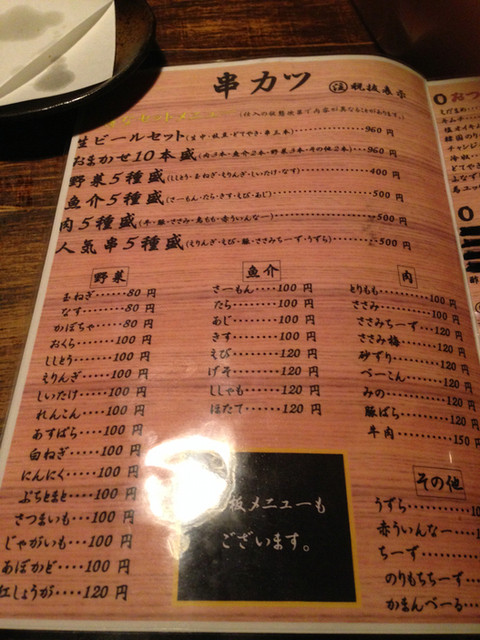 串カツ 注税抜表示
セットメニュー(仕入の状態次第で内容が異なることがあります。)
生ビールセット(生中・枝豆・どてやき・串三本)……960 円
おまかせ10本盛(肉3本・魚介2本・野菜3本・その他2本)……960 円
野菜5種盛(ししとう・玉ねぎ・えりんぎ・しいたけ・なす)……400 円
魚介5種盛(さーもん・たら・きす・えび・あじ)……500 円
肉5種盛(牛・豚・ささみ・鳥もも・赤ういんなー)……500 円
人気串5種盛(えりんぎ・えび・豚・ささみちーず・うずら)……500 円
野菜
玉ねぎ……80 円
なす……80 円
かぼちゃ……80 円
おくら……100 円
ししとう……100 円
えりんぎ……100 円
しいたけ……100 円
れんこん……100 円
あすぱら……100 円
白ねぎ……100 円
にんにく……100 円
ぷちとまと……100 円
さつまいも…100 円
じゃがいも…100 円
あぼかど……100 円
紅しょうが……120 円
魚介
さーもん……100 円
たら……100 円
あじ……100 円
きす……100 円
えび……120 円
げそ……120 円
ししゃも……120 円
ほたて……120 円
肉
とりもも……100 円
ささみ……100 円
ささみちーず…120 円
ささみ梅……120 円
砂ずり……120 円
べーこん……120 円
みの……120 円
豚ばら……120 円
牛肉……150 円
その他
うずら……
赤ういんなー…
ちーず……
のりもちちーず…
かまんべーる…
板メニューも
ございます。
おつ
えだまめ
キムチ
チャンジ
冷奴
どてやき